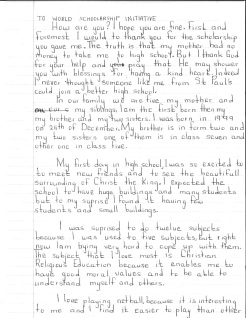 TO WORLD SCHOLARSHIP INITIATIVE
How are you? I hope you are fine. First and
foremost I would to thank you for the scholarship
you gave me. The truth is that my mother had no
money to take me to high school. But I thank God
for your help and pray that He may shower
you with blessings for having a kind heart. Indeed
I never thought someone like me from St Paul's
could join a better high school.
In our family we are five, my mother and
my siblings. I am the first born then my
my brother and my two sisters. I was born, in 1999
on 28th of December. My brother is in form two and
my two sisters one of them is in class seven and
other one in class five.
My first day in high school, I was so excited to
to meet new friends and to see the beautiful
surrounding of Christ the King. I expected the
school to have huge buildings and many students
but to my suprise I found it having few
students and small buildings.
I was suprised to do twelve subjects
because I was used to five subjects, but right
now I am trying very hard to cope up with them.
The subject that I love most is Christian
Religious Education because it enables me to
have good moral values and to be able to
understand myself and others.
I love playing netball, because it is interesting
to me and I find it easier to play than other